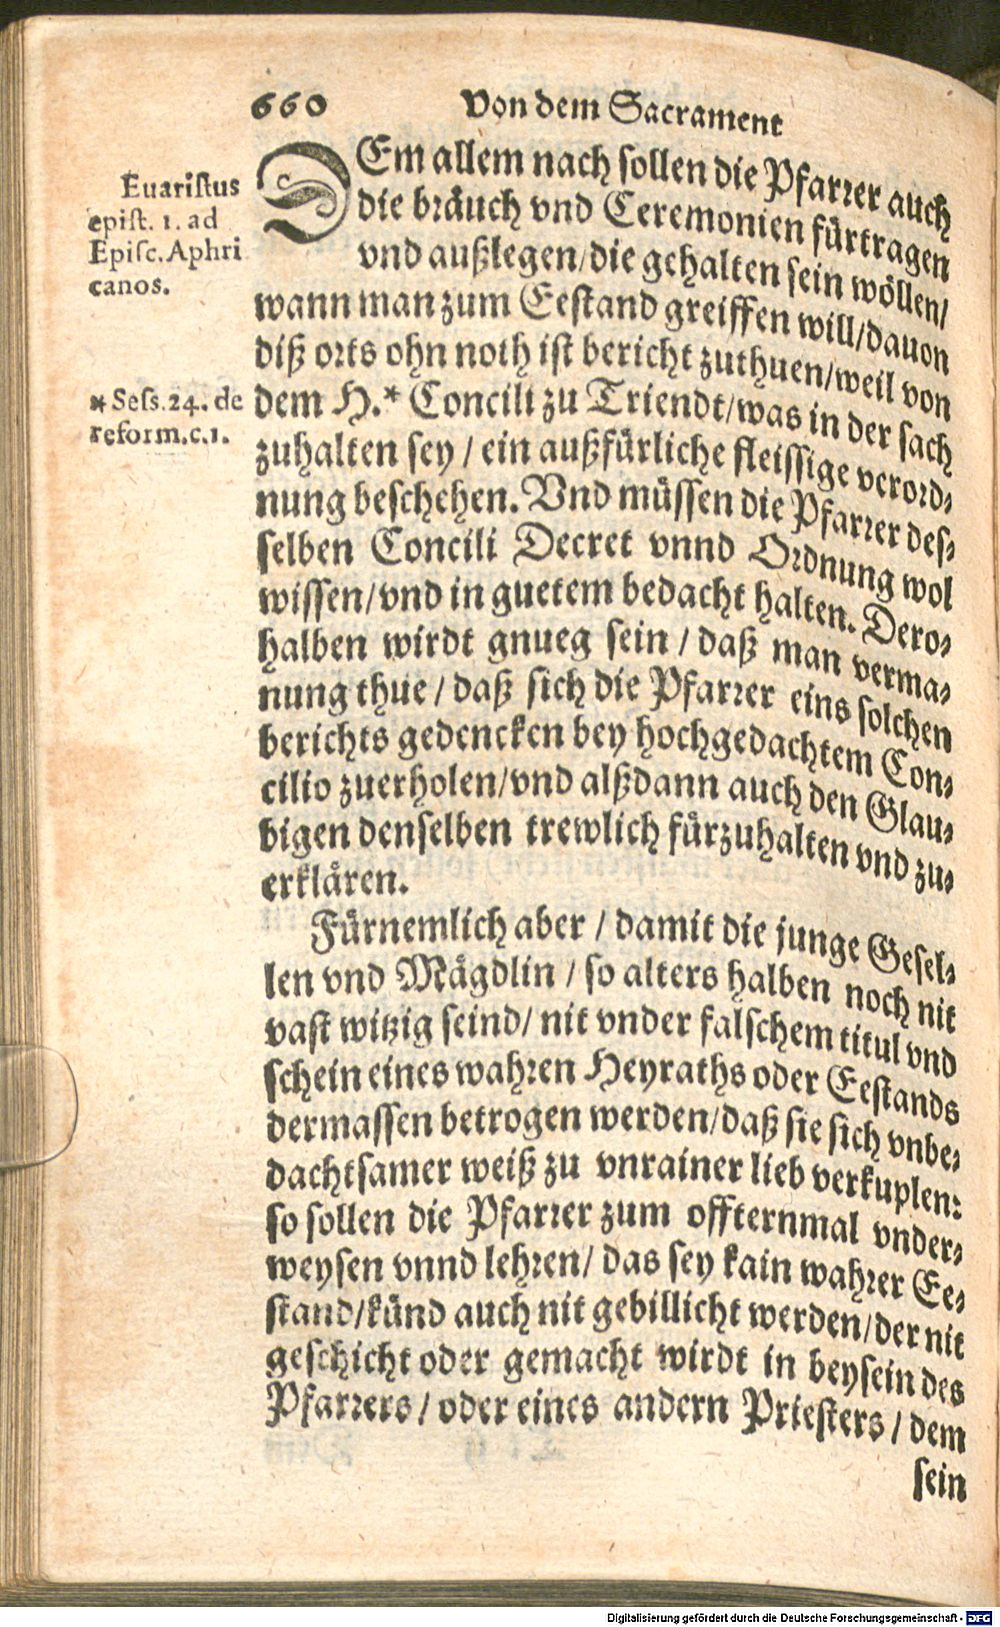 660 Von dem Sacrament
DEm allem nach sollen die Pfarrer auch
die bräuch vnd Ceremonien fürtragen
vnd außlegen/die gehalten sein wöllen/
wann man zum Eestand greiffen will/dauon
diß orts ohn noth ist bericht zuthuen/weil von
dem H.* Concili zu Triendt/was in der sach
zuhalten sey / ein außfürliche fleissige verord-
nung beschehen. Vnd müssen die Pfarrer des-
selben Concili Decret vnnd Ordnung wol
wissen/vnd in guetem bedacht halten. Dero-
halben wirdt gnueg sein / daß man verma-
nung thue / daß sich die Pfarrer eins solchen
berichts gedencken bey hochgedachtem Con-
cilio zuerholen/vnd alßdann auch den Glau-
bigen denselben trewlich fürzuhalten vnd zu-
erklären.
Fürnemlich aber / damit die junge Gesel-
len vnd Mägdlin / so alters halben noch nit
vast witzig seind/ nit vnder falschem titul vnd
schein eines wahren Heyraths oder Eestands
dermassen betrogen werden/daß sie sich vnbe-
dachtsamer weiß zu vnrainer lieb verkuplen:
so sollen die Pfarrer zum offternmal vnder-
weysen vnnd lehren/ das sey kain wahrer Ee-
stand/künd auch nit gebillicht werden/der nit
geschicht oder gemacht wirdt in beysein des
Pfarrers / oder eines andern Priesters / dem
sein
Euaristus
epist. 1. ad
Episc. Aphri
canos.
* Sess. 24. de
reform.c.1.
Digitalisierung gefördert durch die Deutsche Forschungsgemeinschaft - DFG